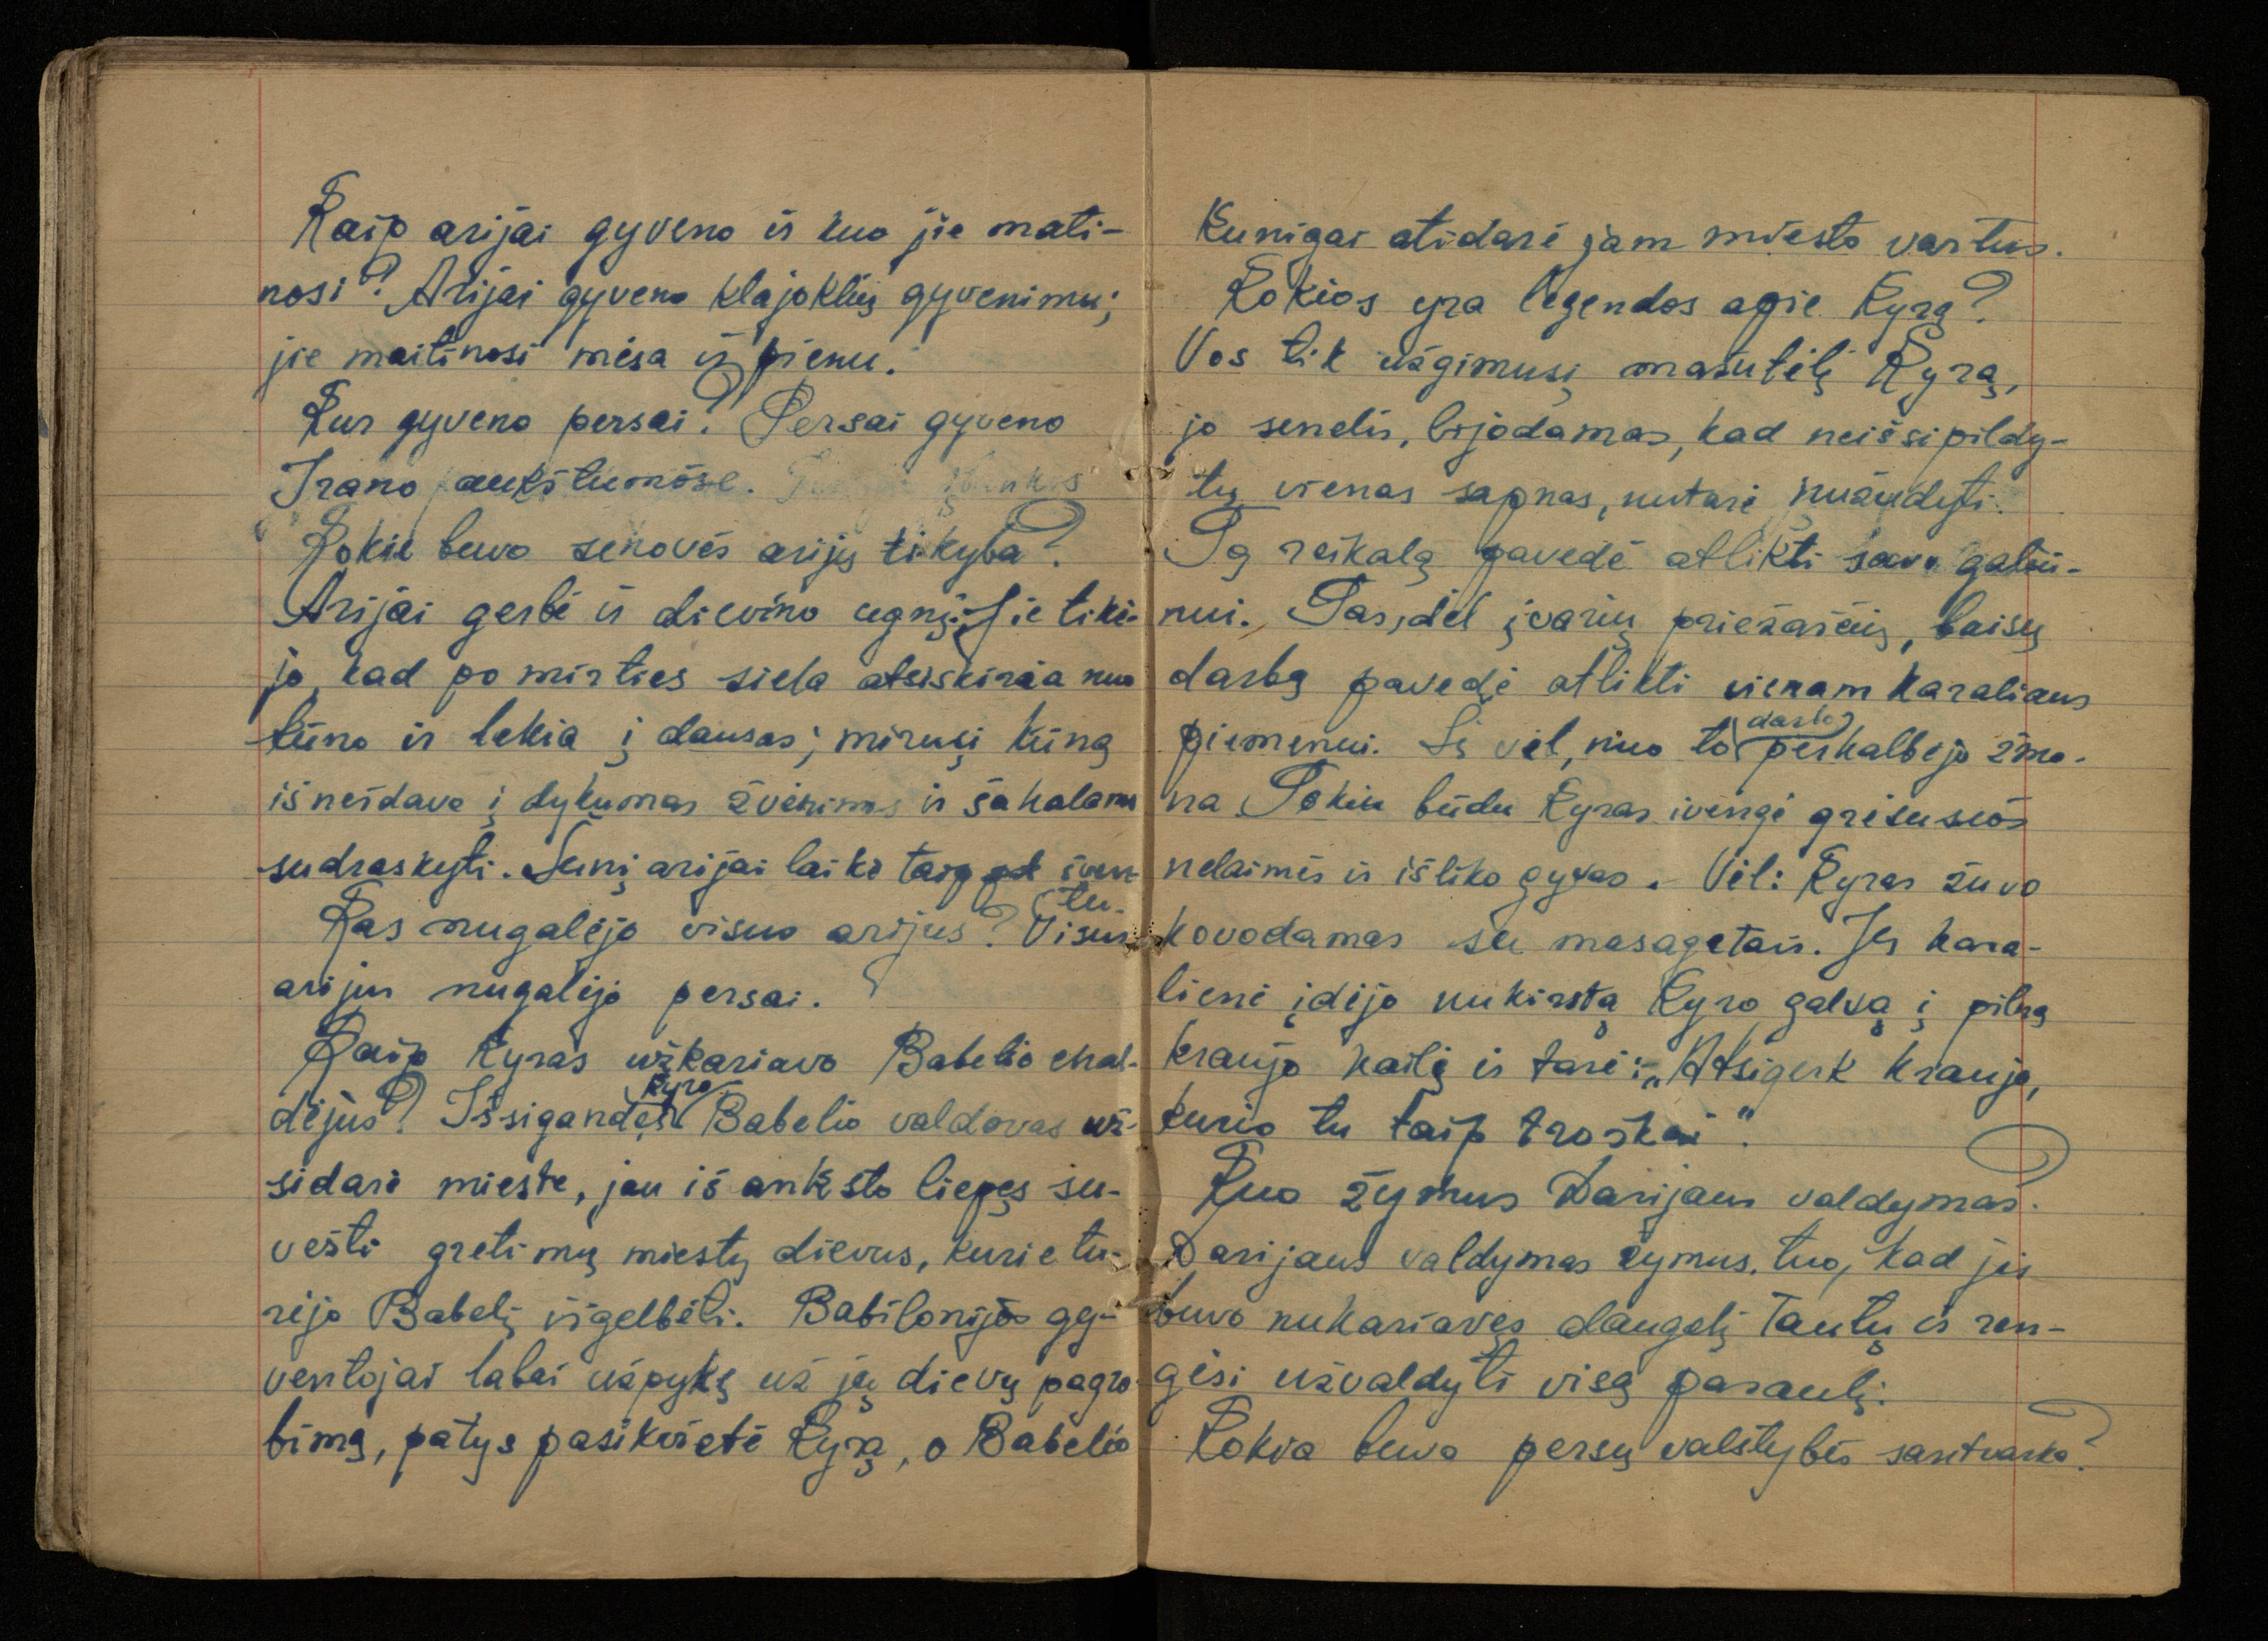 Kaip arijai gyveno ir kuo jie mati-
nosi? Arijai gyveno klajoklių gyvenimu;
jie maitinosi mėsa ir pienu.
Kur gyveno persai? Persai gyveno
Irano aukštumose.
Kokie buvo senovės arijų tikyba?
Arijai gerbė ir dievino ugnį. Jie tikė-
jo, kad po mirties siela atsiskiria nuo
kūno ir lekia į dausas; mirusį kūną
išnešdavo į dykumas žvėrims ir šakalams
sudraskyti. Šunį arijai laikė taip pat šven-
tu.
Kas nugalėjo visus arijus? Visus
arijus nugalėjo persai.
Kaip Kyras užkariavo Babelio chal-
dėjus? Išsigandęs Kyro Babelio valdovas už-
sidarė mieste, jau iš anksto liepęs su-
vežti gretimų miestų dievus, kurie tu-
rėjo Babelį išgelbėti. Babilonijos gy-
ventojai labai užpykę už jų dievų pagro-
bimą, patys pasikvietė Kyrą, o Babelio
Kunigai atidarė jam miesto vartus.
Kokios yra legendos apie Kyrą?
Vos tik užgimusį mažutėlį Kyrą,
jo senelis, bijodamas, kad neišsipildy-
tų vienas sapnas, nutarė nužudyti.
Tą reikalą pavedė atlikti savo galiū-
nui. Tas, dėl įvarių priežasčių, baisų
darbą pavedė atlikti vienam karaliaus
piemenui. Šį vėl, nuo to darbo perkalbėjo žmo-
na. Tokiu būdu Kyras išvengė gresusios
nelaimės ir išliko gyvas. Vėl: Kyras žuvo
kovodamas su masagetais. Jų kara-
lienė įdėjo nukirstą Kyro galvą į pilną
kraujo kailį ir tarė: „Atsigerk kraujo,
kurio tu taip troškai".
Kuo žymus Darijaus valdymas?
Darijaus valdymas žymus, tuo, kad jis
buvo nukariavęs daugelį tautų ir ren-
gėsi užvaldyti visą pasaulį.
Kokia buvo persų valstybės santvarka?